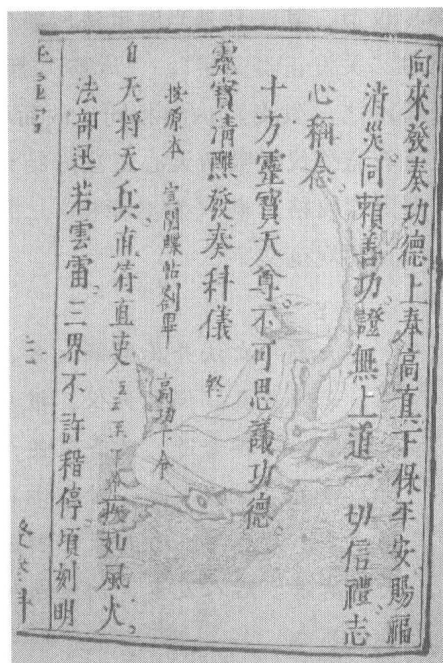 向來發奏功德上奉高真下保平安賜福
消災同賴善功證無上道一切信禮志
心稱念
十方靈寶天尊不可思議功德
靈寶清醮發奏科儀 終
按原本 宣關牒帖劄畢 高功下令
天將天兵直符直吏 疾如風火
法部迅若雲雷三界不許稽停頃刻明